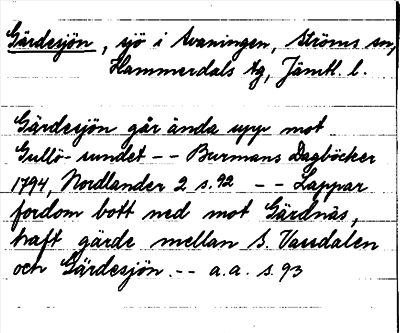 Gärdesjön, sjö i Avaningen, Ströms sn,
Hammerdals tg, Jämtl. l.
Gärdesjön går ända upp mot
Gullö-sundet -- Burmans Dagböcker
1794, Nordlander 2 s. 92 -- Lappar
fordom bott ned mot Gärdnäs,
haft gärde mellan S. Vassdalen
och Gärdesjön. -- a.a. s. 93